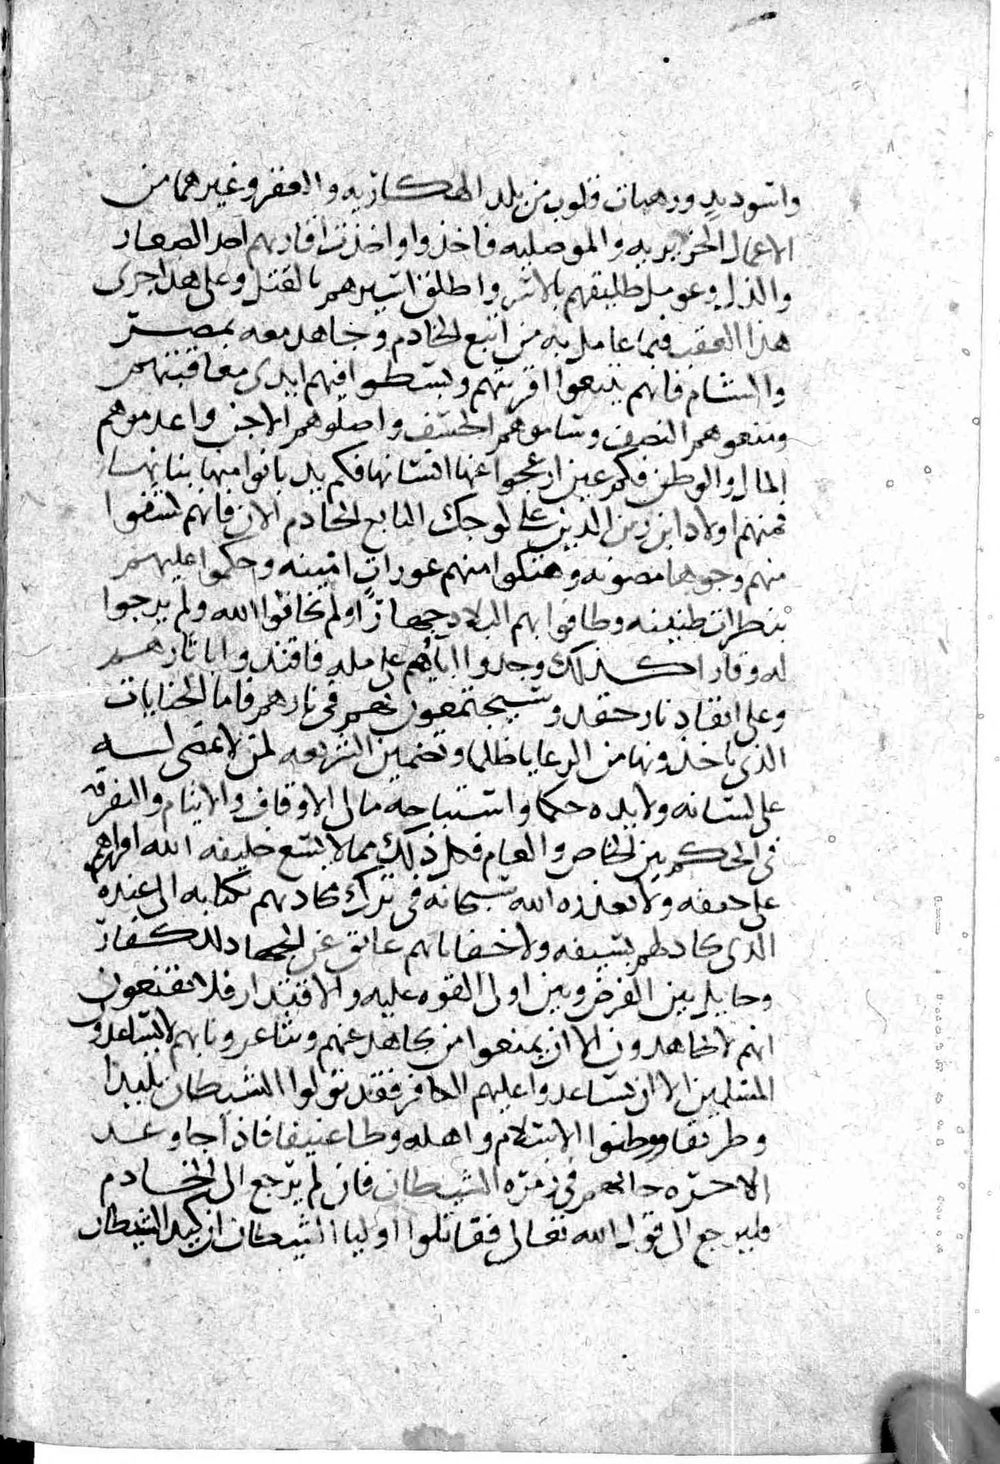 واسود يد ورهبات قلوب من بلد الهكاريه والعقر وغيرهما من
الاعمال الجزيريه والموصليه فاخذوا واخذت اقاربهم اخذ الصغار
والذل وعومل طليقهم بالاسر واطلق اسيرهم بالقتل وعلى هذا جرى
هذا العقب فيما عامل به من اتبع الخادم وجاهد معه بمصر
والشام فانهم يتبعوا اقربتهم وبسطوا فيهم ايدى معاقبتهم
ومنعوهم النصف وساموهم الخسف واصلوهم الاجن واعدموهم
المال والوطن فكم عين ازعجوا عنها انسانها فكم يد بانوا منها بنانها
فمنهم اولاد ابن زين الدين على لوجك التابع الخادم الان فانهم
منهم وجوها مصونه وهتكوا منهم عورات امينه وحكموا عليهم
بنظرات ظنينه وطافوا بهم البلاد جهارا ولم يخافوا الله ولم يرجوا
له وقارا كذلك وجدوا اباهم على مله فاقتدوا باثارهم
وعلى اتقاد نار حقد وسيجتمعون معهم فى نارهم فاما الجنايات
الذى ياخذونها من الرعايا ظلما وتضمين الشريعه لمن لا يمضى لسه
على لسانه ولا يده حكما واستباحه مال الاوقاف والايتام والتفرقه
فى الحكم بين الخاص والعام فكل ذلك مما لا يسع خليفه الله اقرارهم
على ولا يعذره الله سبحانه فى ترك جهادهم بكتابه الى عبده
الذى جهادهم بسيفه ولا خفا بانهم عايق عن الجهاد للكفار
وحايل بين الفرض وبين اولى القوه عليه والاقتدار فلا يقنعون
انهم لا يجاهدون الا ان يمنعوا من يجاهد عنهم وبانهم لا يساعدون
المسلمين الا ان يساعدوا عليهم الكافر فقد تولوا الشيطان تلبيدا
وطريقا ووطيوا الاسلام واهله وطا عنيفا فاذا جا وعد
الاخره جا بهم فى زمره الشيطان فان لم يرجع الى الخادم
فليرجع الى قول الله تعالى فقاتلوا اوليا الشيطان ان كيد الشيطان